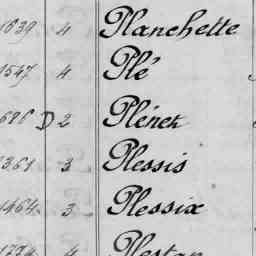 1639 4 Planchette
1547 4 Plé
686 D 2 Plének
1361 3 Plessis
1464 3 Plessix
4 Plestan